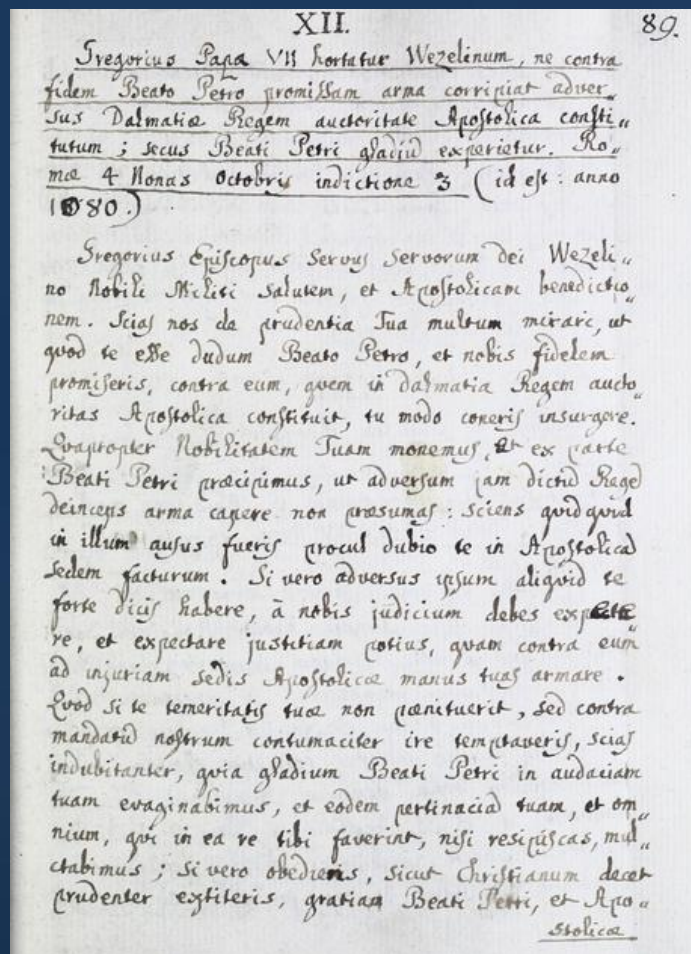 XII.
89.
Gregorius Papa VII hortatur Wezelinum, ne contra
fidem Beato Petro promissam arma corripiat adver„
sus Dalmatiæ Regem auctoritate Apostolica consti„
tutum ; secus Beati Petri gladiū experietur. Ro„
mæ 4 Nonas Octobris indictione 3 (id est : anno
1080.)
Gregorius Episcopus Servus Servorum dei Wezeli„
no Nobili Militi Salutem, et Apostolicam benedictio„
nem. Scias nos de prudentia Tua multum mirari, ut
quod te esse dudum Beato Petro, et nobis fidelem
promiseris, contra eum, quem in dalmatia Regem aucto„
ritas Apostolica constituit, tu modo coneris insurgere.
Quapropter Nobilitatem Tuam monemus, et ex parte
Beati Petri præcipimus, ut adversum jam dictū Regē
deinceps arma capere non præsumas : sciens quidquid
in illum ausus fueris procul dubio te in Apostolicā
sedem facturum. Si vero adversus ipsum aliquid te
forte dicis habere, à nobis judicium debes expecta„
re, et expectare justitiam potius, quam contra eum
ad injuriam sedis Apostolicæ manus tuas armare.
Quod si te temeritatis tuæ non pænituerit, sed contra
mandatū nostrum contumaciter ire temptaveris, scias
indubitanter, quia gladium Beati Petri in audaciam
tuam evaginabimus, et eodem pertinaciā tuam, et om„
nium, qui in ea re tibi faverint, nisi resipiscas, mul„
ctabimus ; si vero obediens, sicut Christianum decet
prudenter extiteris, gratiam Beati Petri, et Apo„
stolicæ